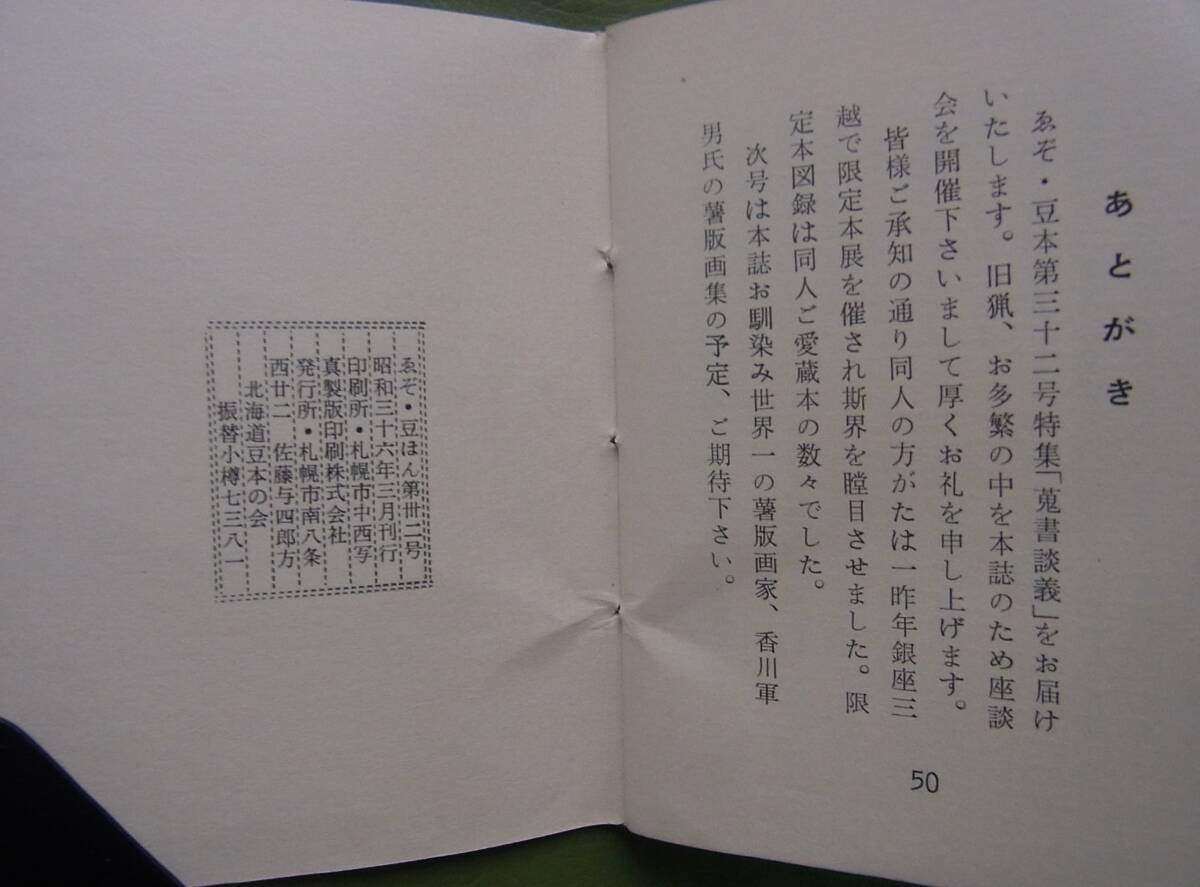 あとがき
ゑぞ・豆本第三十二号特集「蒐書談義」をお届け
いたします。旧猟、お多繁の中を本誌のため座談
会を開催下さいまして厚くお礼を申し上げます。
皆様ご承知の通り同人の方がたは一昨年銀座三
越で限定本展を催され斯界を瞠目させました。限
定本図録は同人ご愛蔵本の数々でした。
次号は本誌お馴染み世界一の薯版画家、香川軍
男氏の薯版画集の予定、ご期待下さい。
50
ゑぞ・豆ほん第卅二号
昭和三十六年三月刊行
印刷所・札幌市中西写
真製版印刷株式会社
発行所・札幌市南八条
西廿二 佐藤与四郎方
北海道豆本の会
振替小樽七三八一